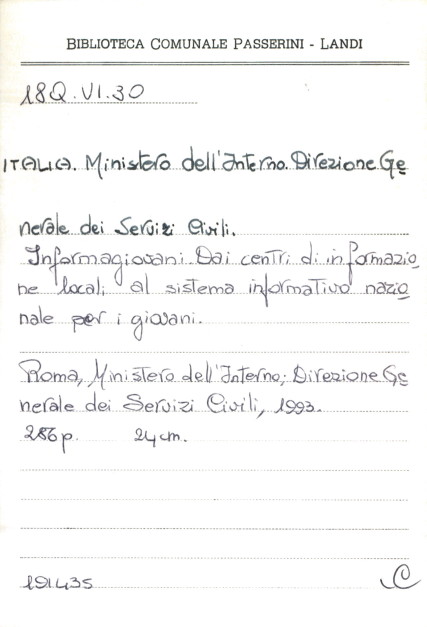 BIBLIOTECA COMUNALE PASSERINI - LANDI
18Q.VI.30
ITALIA. Ministero dell'Interno. Direzione Ge
nerale dei Servizi Civili.
Informagiovani. Dai centri di informazio
ne locali al sistema informativo nazio
nale per i giovani.
Roma, Ministero dell'Interno; Direzione Ge
nerale dei Servizi Civili, 1993.
286 p. 24 cm.
191435 C